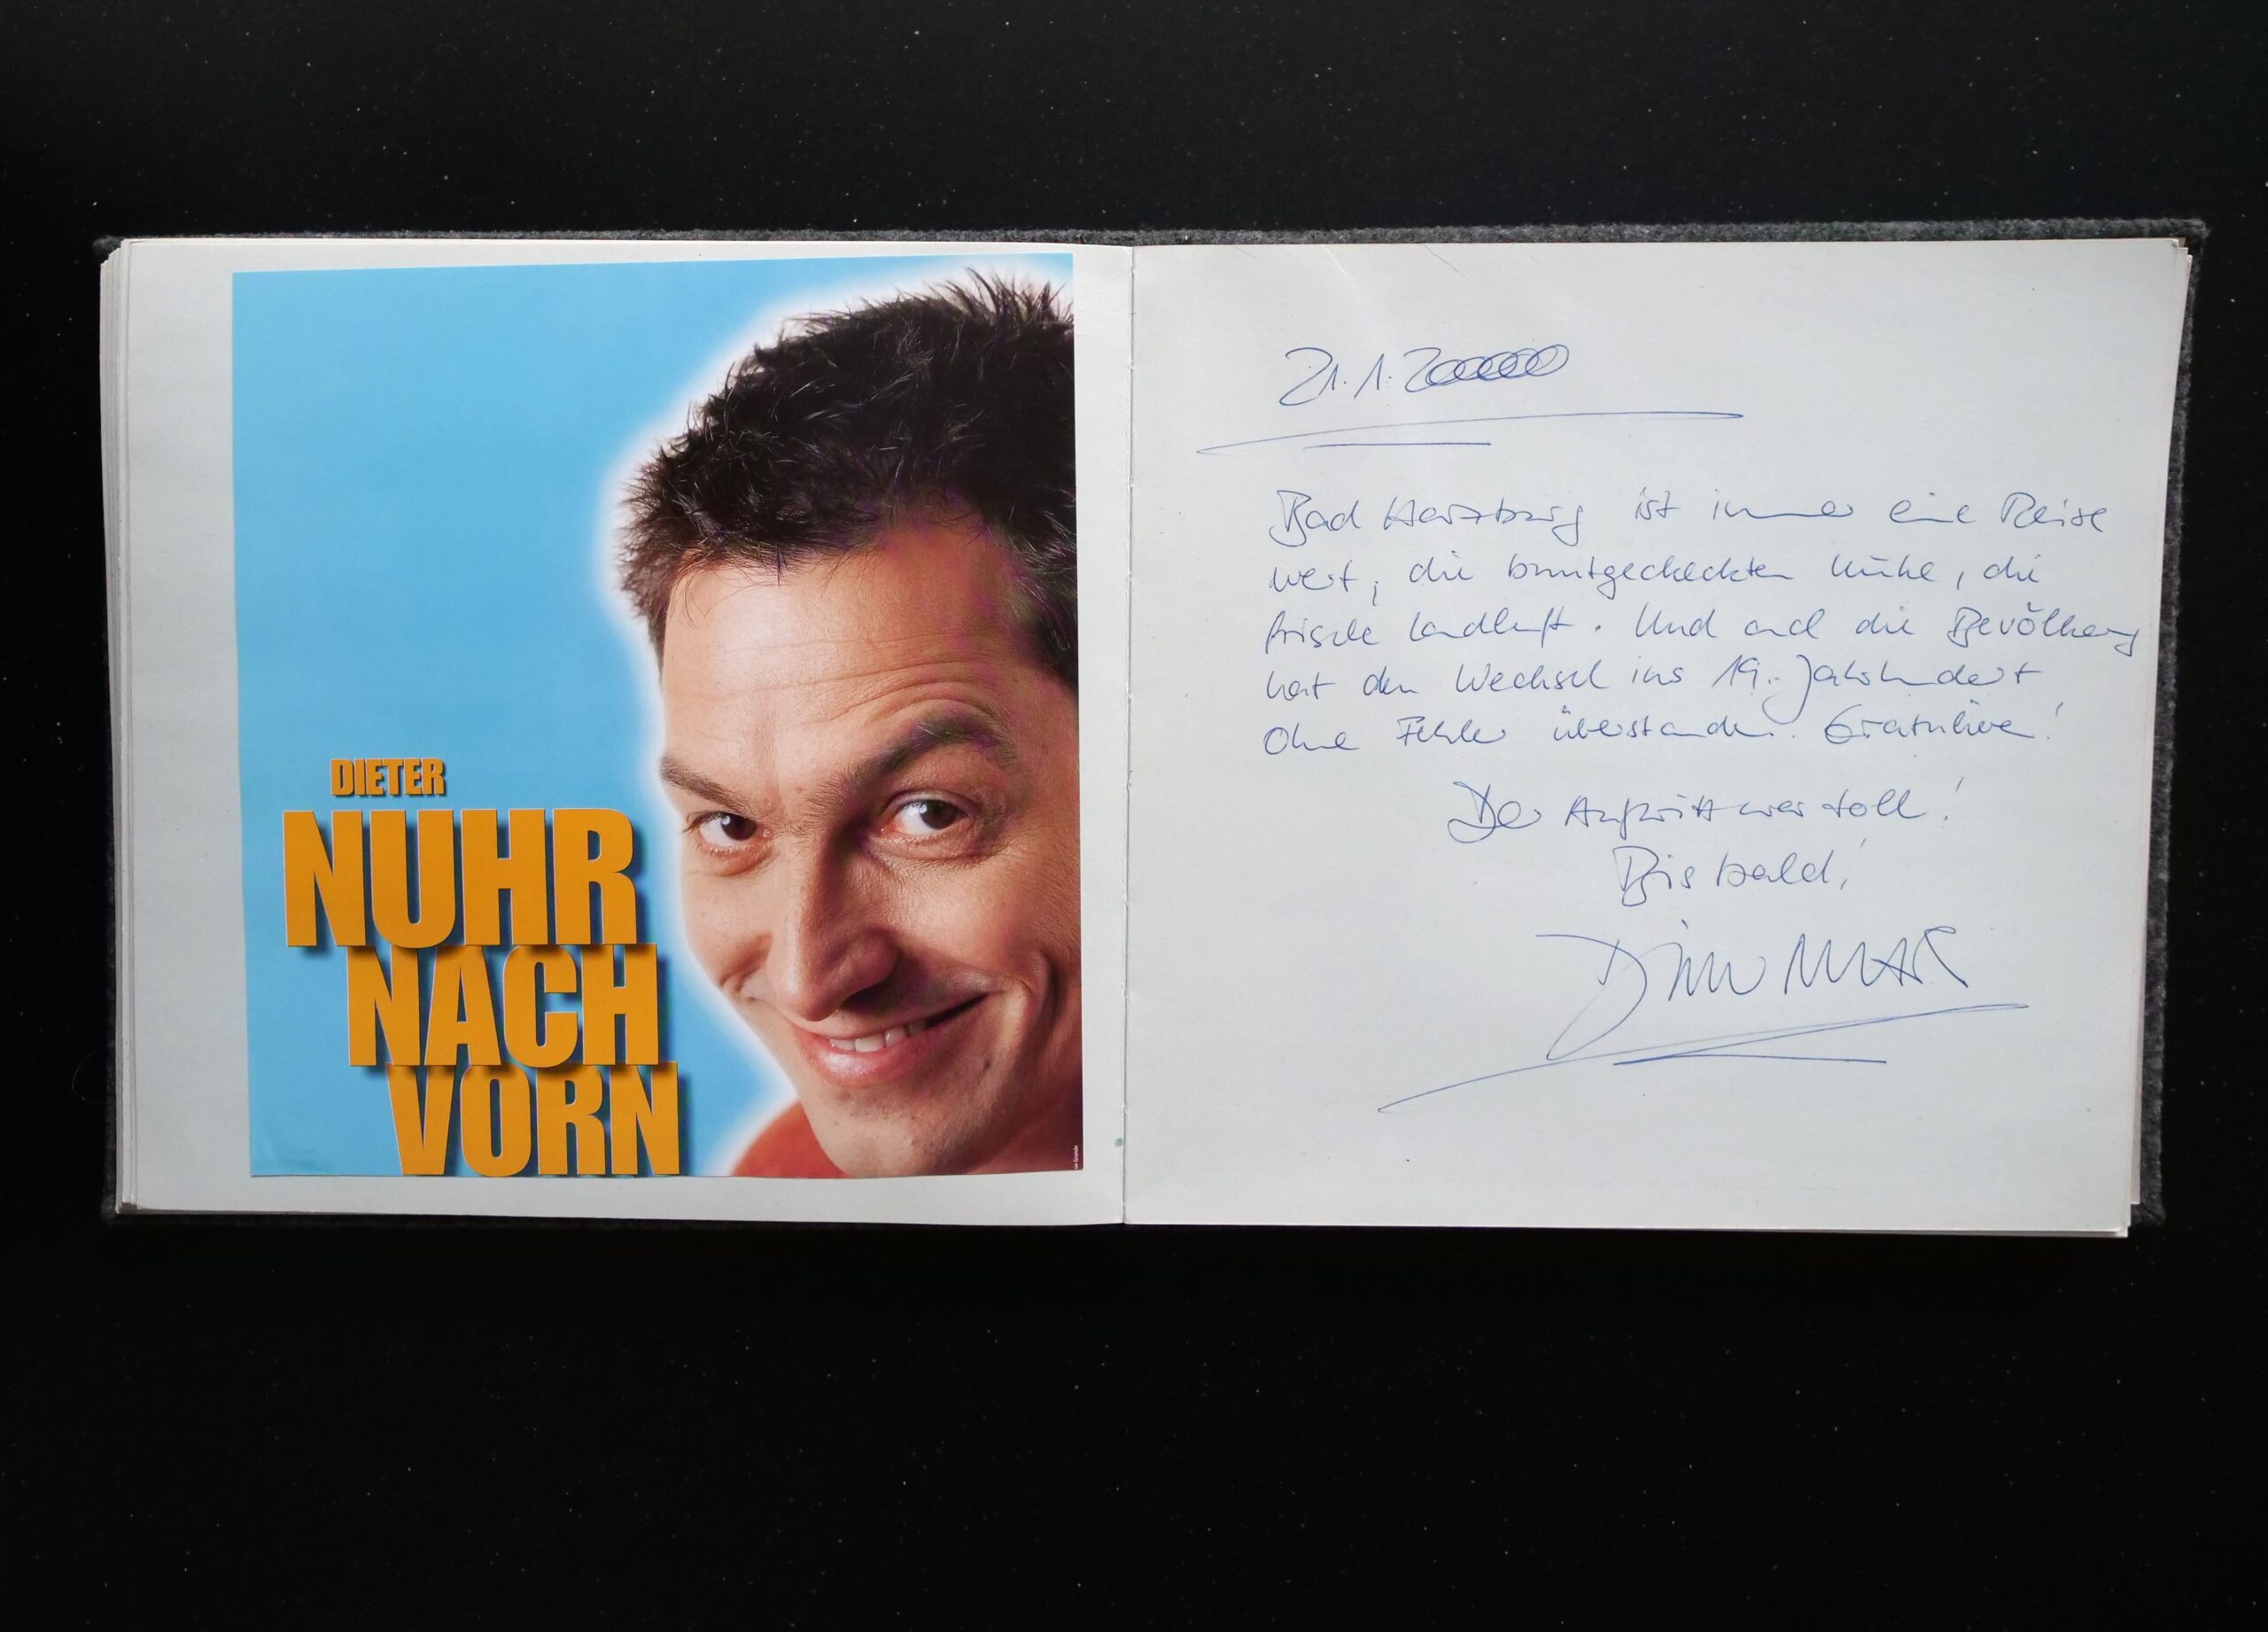 DIETER
NUHR
NACH
VORN
21.1.2000000
Bad Harzburg ist immer eine Reise
wert, die buntgecheckten Kühe, die
frische Landluft. Und auch die Bevölkerung
hat den Wechsel ins 19. Jahrhundert
ohne Fehler überstanden. Gratuliere!
Der Auftritt war toll!
Bis bald!
Dieter Nuhr